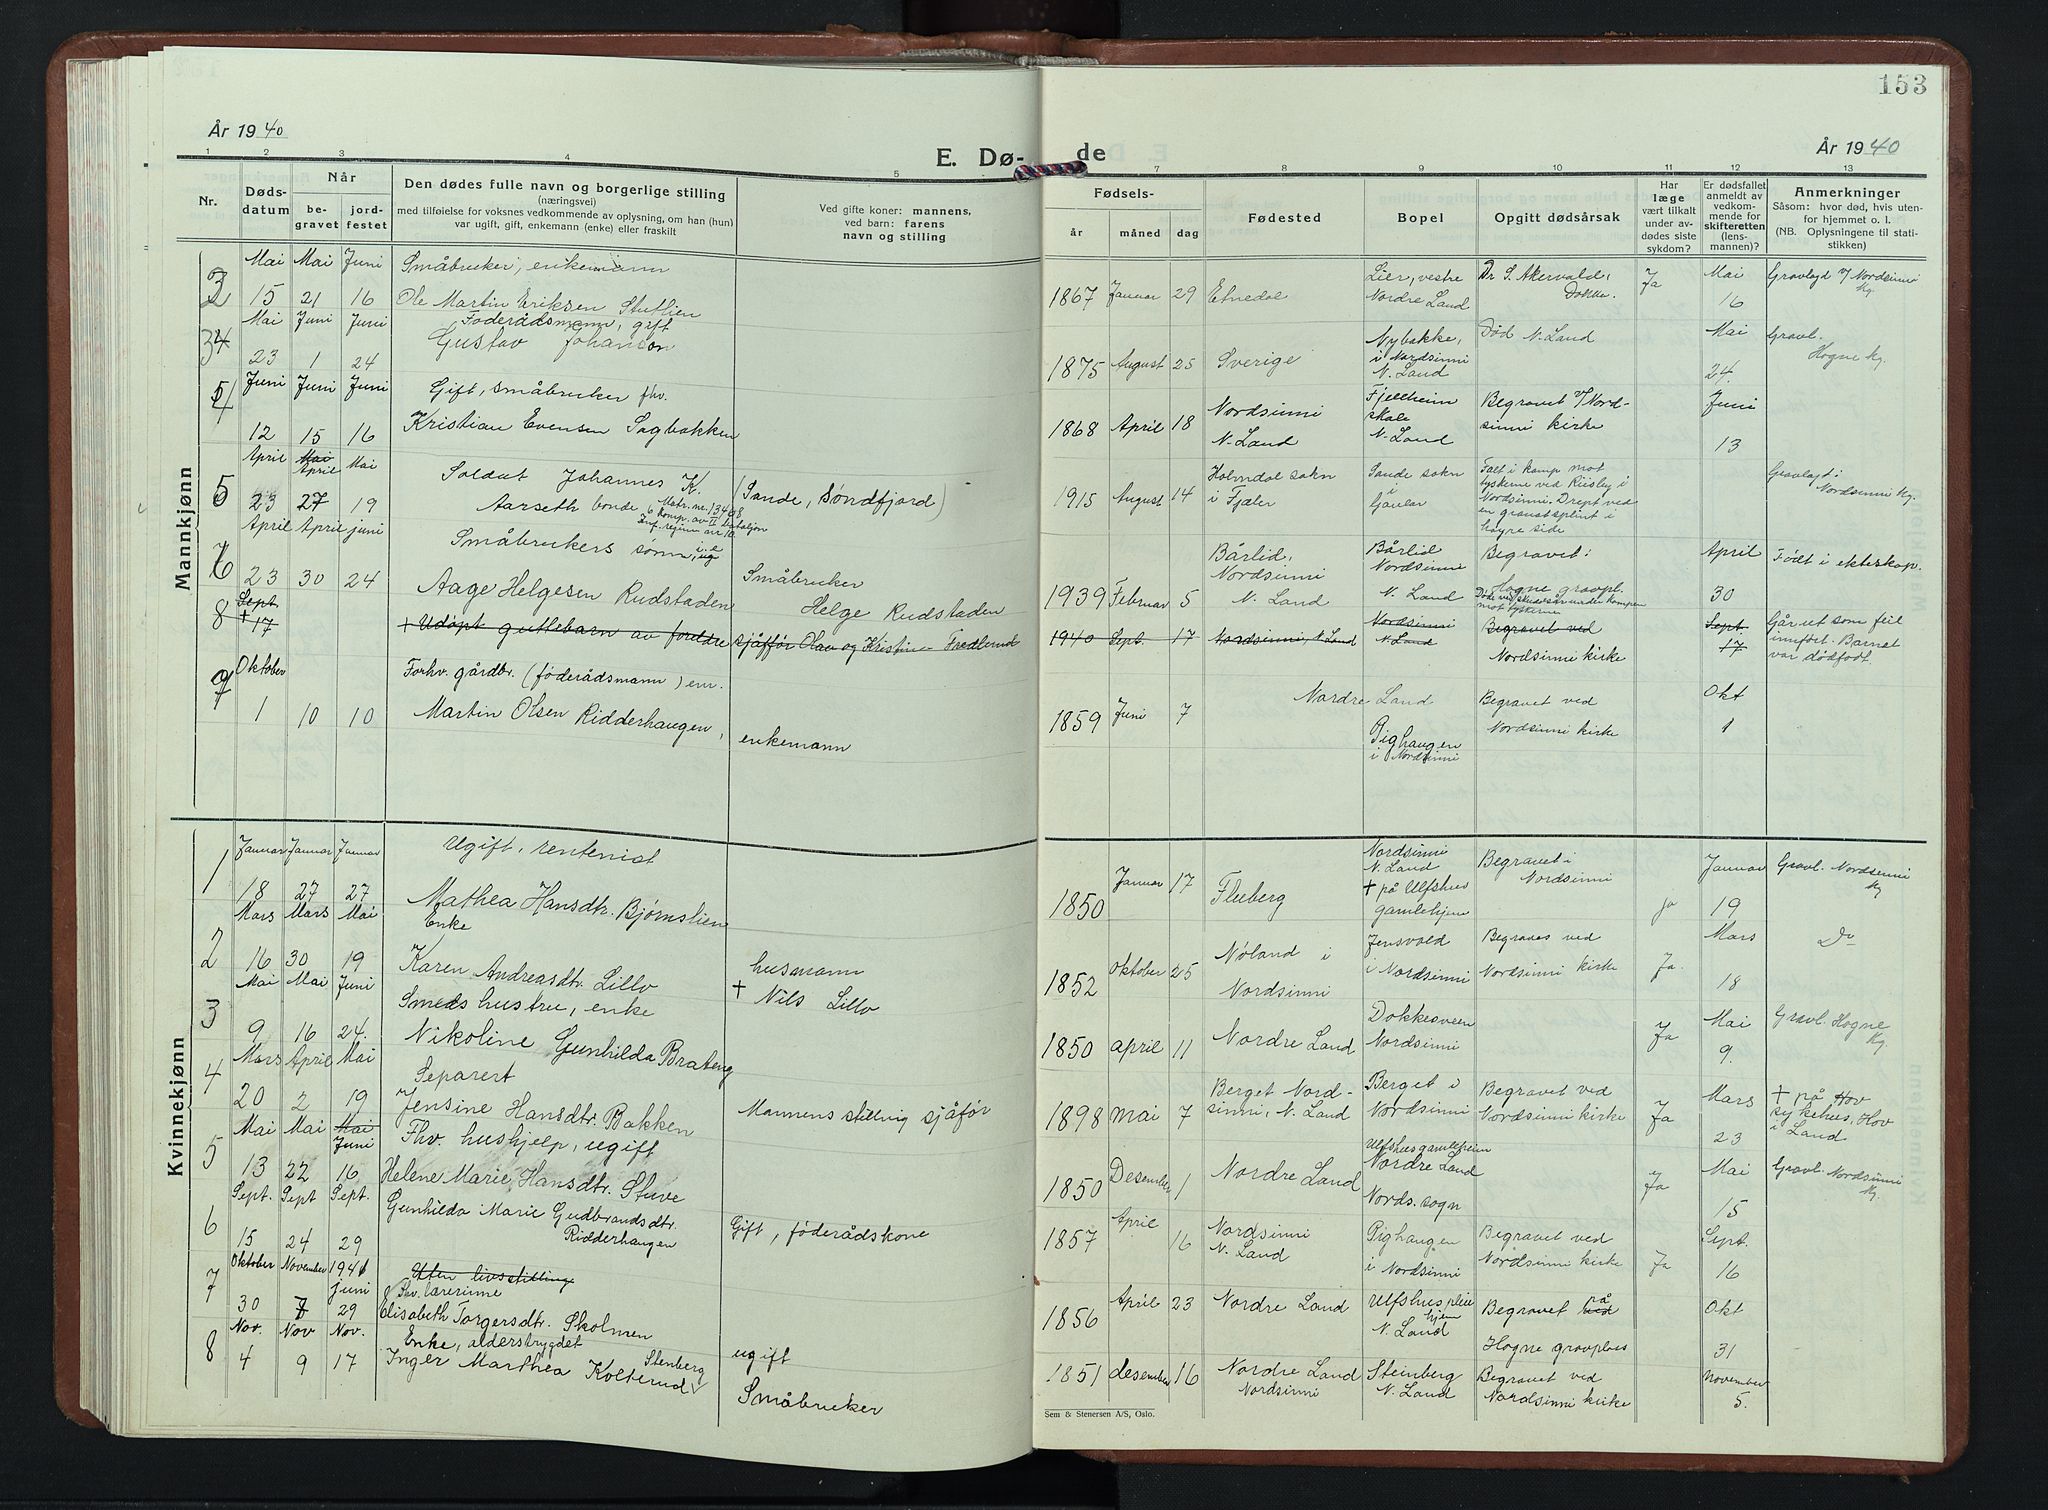 153
År 1940
E. Dø-
de
År 1940
1 2 3 4 5 7 8 9 10 11 12 13
Nr.
Døds-
datum
Når
be-
gravet
jord-
festet
Den dødes fulle navn og borgerlige stilling
(næringsvei)
med tilføielse for voksnes vedkommende av oplysning, om han (hun)
var ugift, gift, enkemann (enke) eller fraskilt
Ved gifte koner: mannens,
ved barn: farens
navn og stilling
Fødsels-
år måned dag
Fødested
Bopel
Opgitt dødsårsak
Har
læge
vært tilkalt
under av-
dødes siste
sykdom?
Er dødsfallet
anmeldt av
vedkom-
mende for
skifteretten
(lens-
mannen)?
Anmerkninger
Såsom: hvor død, hvis uten-
for hjemmet o. l.
(NB. Oplysningene til stati-
stikken)
Mannkjønn
3
Mai Mai Juni
15 21 16
Småbruker, enkemann
Ole Martin Eriksen Stuflien
1867 Januar 29 Etnedal
Lier, vestre
Nordre Land
Dr S. Akervald,
Dokka.
Ja
Mai
16
Gravlagd v/ Nordsinni
Kg.
34
Mai Juni Juni
23 1 24
Føderådsmann, gift
Gustav Johanson
1875 August 25 Sverige
Nybakke,
i Nordsinni
N. Land
Død N. Land
Mai
24.
Gravl.
Hogne kg.
5
Juni Juni Juni
12 15 16
Gift, småbruker fhv.
Kristian Evensen Sagbakken
1868 April 18
Nordsinni
N. Land
Fjellheim
skole
N. Land
Begravet v/ Nord-
sinni kirke
Juni
13
5
April Mai April Mai
23 27 19
Soldat Johannes K.
Aarseth bonde
Matr. nr. 13408
6 komp. av II bataljon
Inf. regim. nr 10
(Sande, Søndfjord)
1915 August 14
Holmdal sokn
i Fjaler
Sande sokn
i
Gaular
Falt i kamp mot
tyskerne ved Riisby i
Nordsinni. Drept ved
en granatsplint i
høyre side
Gravlagt i
Nordsinni kg.
6
April April juni
23 30 24
Småbrukers sønn,
Aage Helgesen Rudstaden
Småbruker
Helge Rudstaden
1939 Februar 5
Bårlid,
Nordsinni
N. Land
Bårlid
Nordsinne
N. Land
Begravet:
Hogne gravpl.
Døde ved skudsår under kampen
mot tyskerne
April
30
Født i ekteskap.
8
Sept.
+ 17
+ Udøpt guttebarn av foreldre sjåffør Olav og Kristine Fredlund
1940 Sept. 17 Nordsinni, N. Land
Nordsinni
N. Land
Begravet ved
Nordsinni kirke
Sept.
17
Går ut som feil
innført. Barnet
var dødfødt.
9
Oktober
1 10 10
Forhv. gårdbr. (føderådsmann) em.
Martin Olsen Ridderhaugen,
enkemann
1859 Juni 7
Nordre Land
Pighaugen
i Nordsinni
Begravet ved
Nordsinni kirke
Okt
1
Kvinnekjønn
1
Januar Januar Januar
18 27 27
Ugift, rentenist
Mathea Hansdtr. Bjørnslien
1850 Januar 17 Fluberg
Nordsinni
N. Land
+ på Ulfshus
gamlehjem
Begravet i
Nordsinni
ja
Januar
19
Gravl. Nordsinni
Kg
2
Mars Mars Mai
16 30 19
Enke
Karen Andreasdtr. Lillo
husmann
+ Nils Lillo
1852 Oktober 25
Nøland i
Nordsinni
Jensvold
i Nordsinni
Begraves ved
Nordsinni kirke
Ja.
Mars
18
Do
3
Mai Mai Juni
9 16 24.
Smeds hustru, enke
Nikoline Gunhilda Brateng
1850 april 11 Nordre Land
Dokkesveen
Nordsinni
Ja
Mai
9.
Gravl. Hogne
Kg.
4
Mars April Mai
20 2 19
Separert
Jensine Hansdtr. Bakken
Mannens stilling sjåfør
1898 mai 7
Berget Nord-
sinni, N. Land
Berget i
Nordsinni
Begravet ved
Nordsinni kirke
Ja
Mars
23
+ på Hov
sykehus, Hov
i Land
5
Mai Mai Mai
Juni
13 22 16
Fhv. hushjelp, ugift
Helene Marie Hansdtr. Stuve
1850 Desember 1 Nordre Land
Ulfshus gamlehjem
Nordre Land
Nords. sogn
Ja
Mai
15
Gravl. Nordsinni
Kg.
6
Sept. Sept Sept.
15 24 29
Gunhilda Marie Gudbrandsdtr.
Ridderhaugen
Gift, føderådskone
1857 April 16
Nordsinni
N. Land
Pighaugen
i Nordsinni
Begravet ved
Nordsinni kirke
Ja
Sept.
16
7
Oktober November 1941
juni
30 8 29
Uten livsstilling
Fhv. lærerinne
Elisabeth Torgersdtr. Skolmen
ugift
1856 April 23 Nordre Land
Ulfshus pleie
hjem
N. Land
Begravet ved på
Hogne gravplass
Okt
31
8
Nov. Nov Nov.
4 9 17
Enke, alderstrygdet
Inger Marthea Kolterud
Stenberg
Småbruker
1851 desember 16
Nordre Land
Nordsinni
Steinberg
N. Land
Begravet ved
Nordsinni kirke
November
5.
Sem & Stenersen A/S, Oslo.